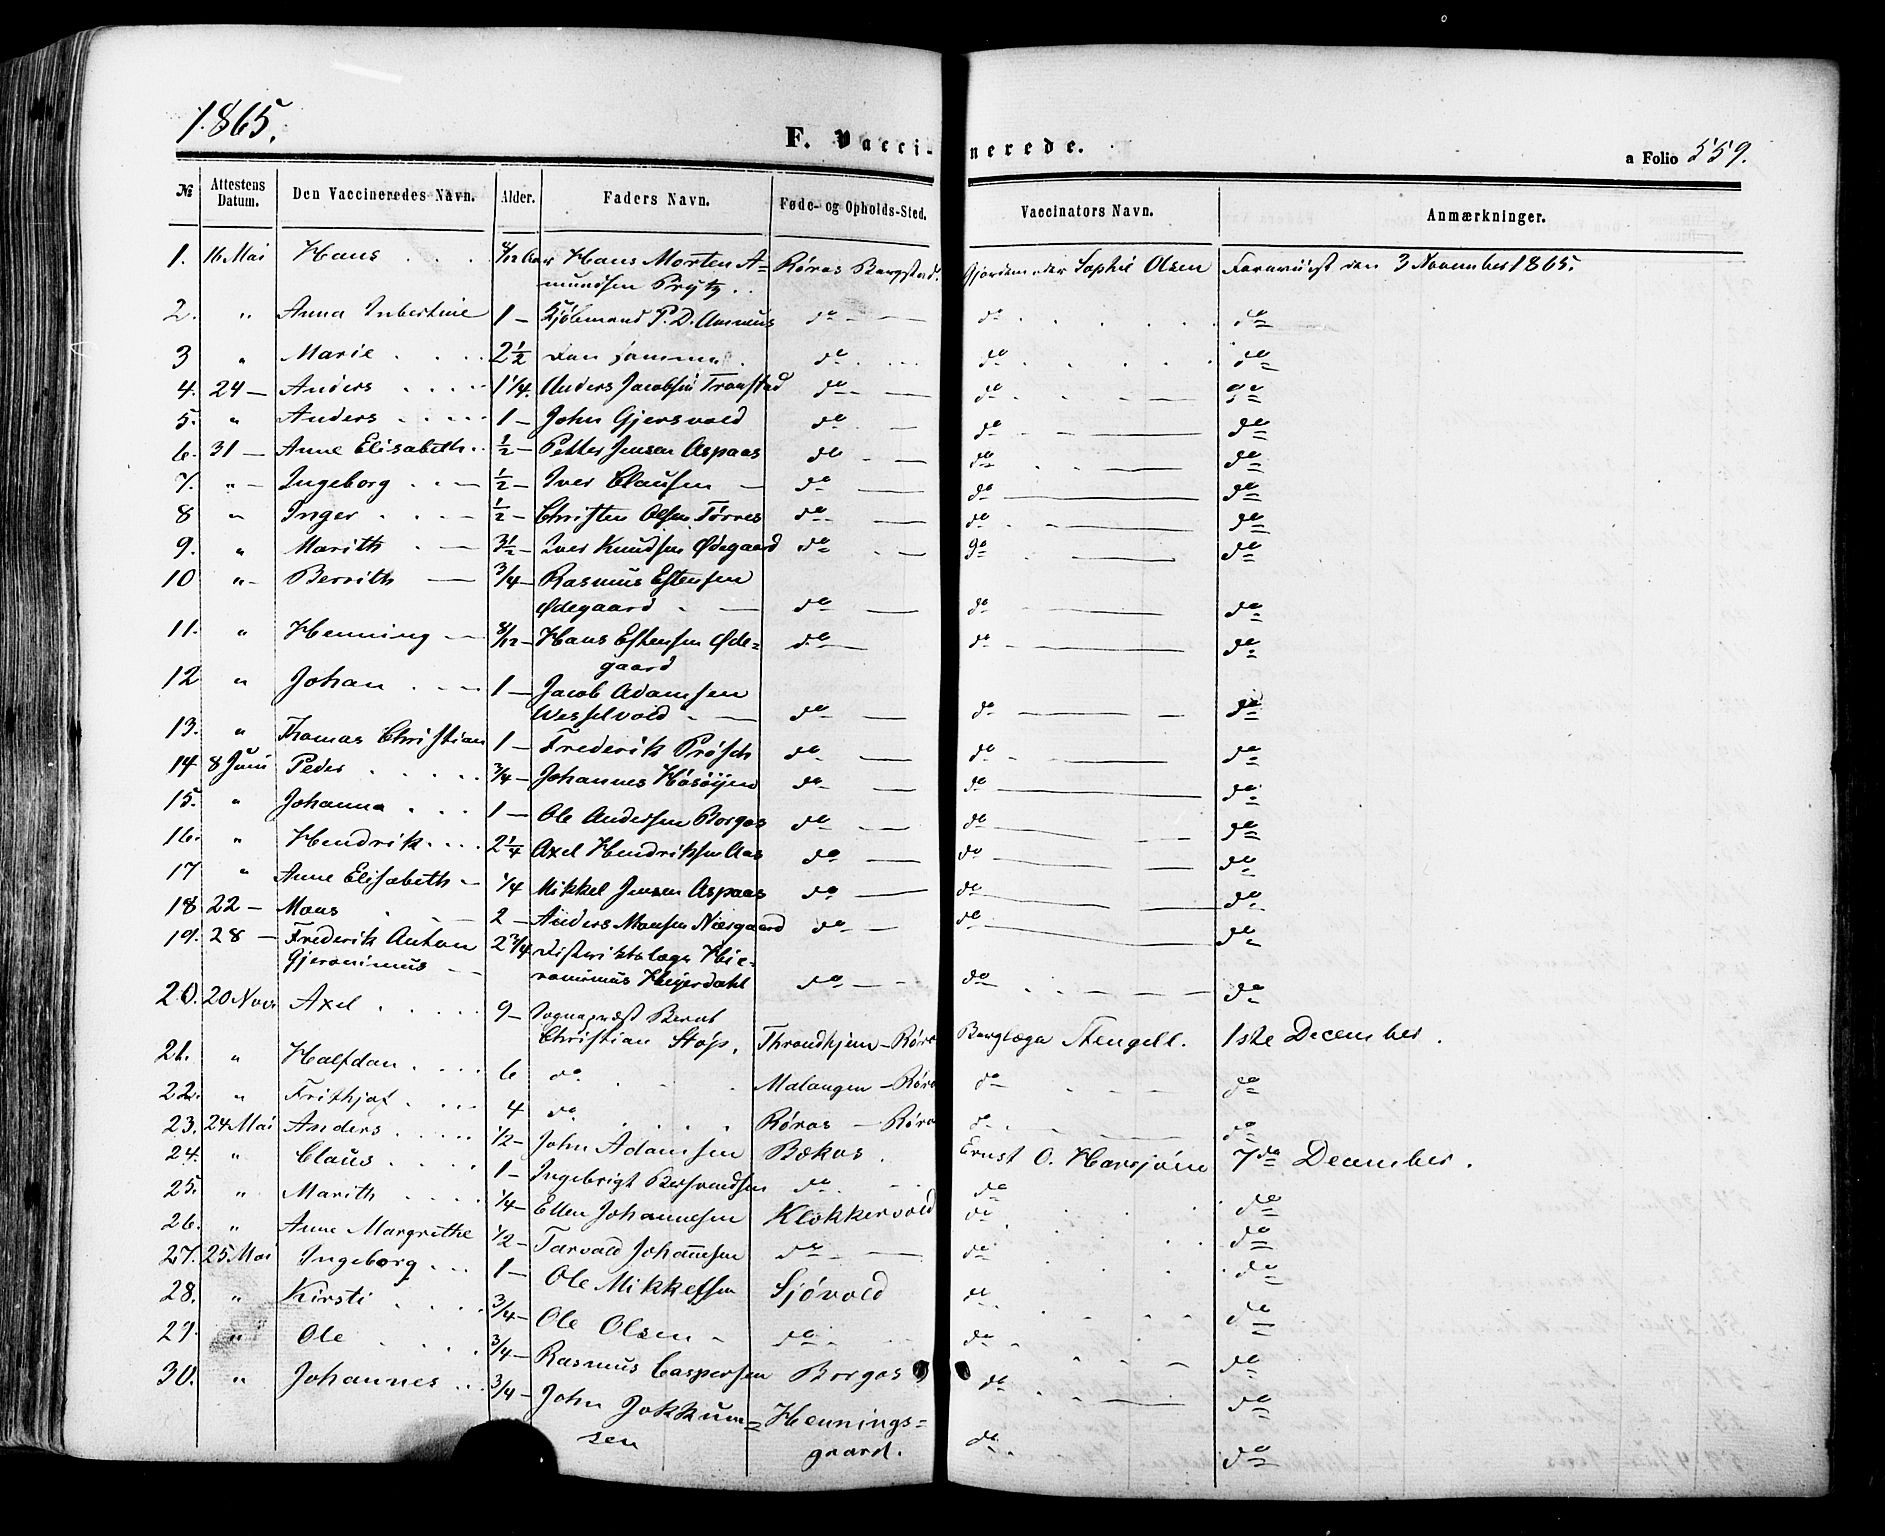 1865.
F. Vaccinerede.
a Folio 559.
№ Attestens Datum. Den Vaccineredes Navn. Alder. Faders Navn. Føde- og Opholds-Sted. Vaccinators Navn. Anmærkninger.
1. 16 Mai Hans 4/12 Hans Morten A= Røros Bergstad. Gjordemoder Sophie Olsen Fornævist den 3 November 1865.
mundsen Prytz.
2. " Anna Inbertine 1 — Kjøbmand P. D. Asmus do do do
3 " Marie 2 1/2 den samme do do do
4. 24 — Anders 1 1/4. Anders Jacobsen Tronstad do do do
5. " Anders 1 — John Gjersvold do do do
6. 31 — Anne Elisabeth 1/2 — Petter Jensen Aspaas do do do
7. " — Ingeborg 1/2 — Iver Clausen — do do do
8 " Inger 1/2 — Christen Olsen Torres do do do
9. " Marith 3 1/2 — Iver Knudsen Ødegaard do do do
10 " Berrith 3/4 — Rasmus Estensen
Ødegaard do do do
11. " Henning 8/12 — Hans Estensen Øde- do do do
gaard
12 " Johan 1 — Jacob Adamsen
Wesselvold do do do
13. " Thomas Christian 1 — Frederik Prösch do do do
14 8 Juni Peder 3/4 — Johannes Høsøyen do do do
15. " Johanna 1 — Ole Andersen Borgos do do do
16. " Hendrik 2 1/4 Axel Hendriksen Aas do do do
17 " Anne Elisabeth 1/4 Mikkel Jensen Aspaas do do do
18 22 — Mons 2 — Anders Monsen Nørgaard do do do
19. 28 — Frederik Anton 2 3/4 Distriktslæge Hie-
Gjeronimus ronimus Heijerdahl do do do
20. 20 Novr Axel 9 — Sognepræst Bernt
Christian Støp. Throndhjem — Røros Berglæge Stengell. 1ste December.
21. " Halfdan 6 do Malangen — Røros do do
22. " Frithjof 4 do Røros — Røros do do
23. 24 Mai Anders 1/2 — John Adamsen Bekos. Ernst O. Harsjøen 7de December.
24. " Claus 1 — Ingebrigt Bersvendsen do do do
25. " Marith 1/4 — Ellen Johannesen Klokkervold do do
26. " Anne Margrethe 1/2 — Tarvald Johannsen do do do
27. 25 Mai Ingeborg 1 — Ole Mikkelsen Sjøvold do do
28. " Kirsti 3/4 — Ole Olsen do do do
29. " Ole 3/4 — Rasmus Caspersen Borgos do do
30. " Johannes 3/4 — John Jokkum= Hennings= do do
sen gaard.